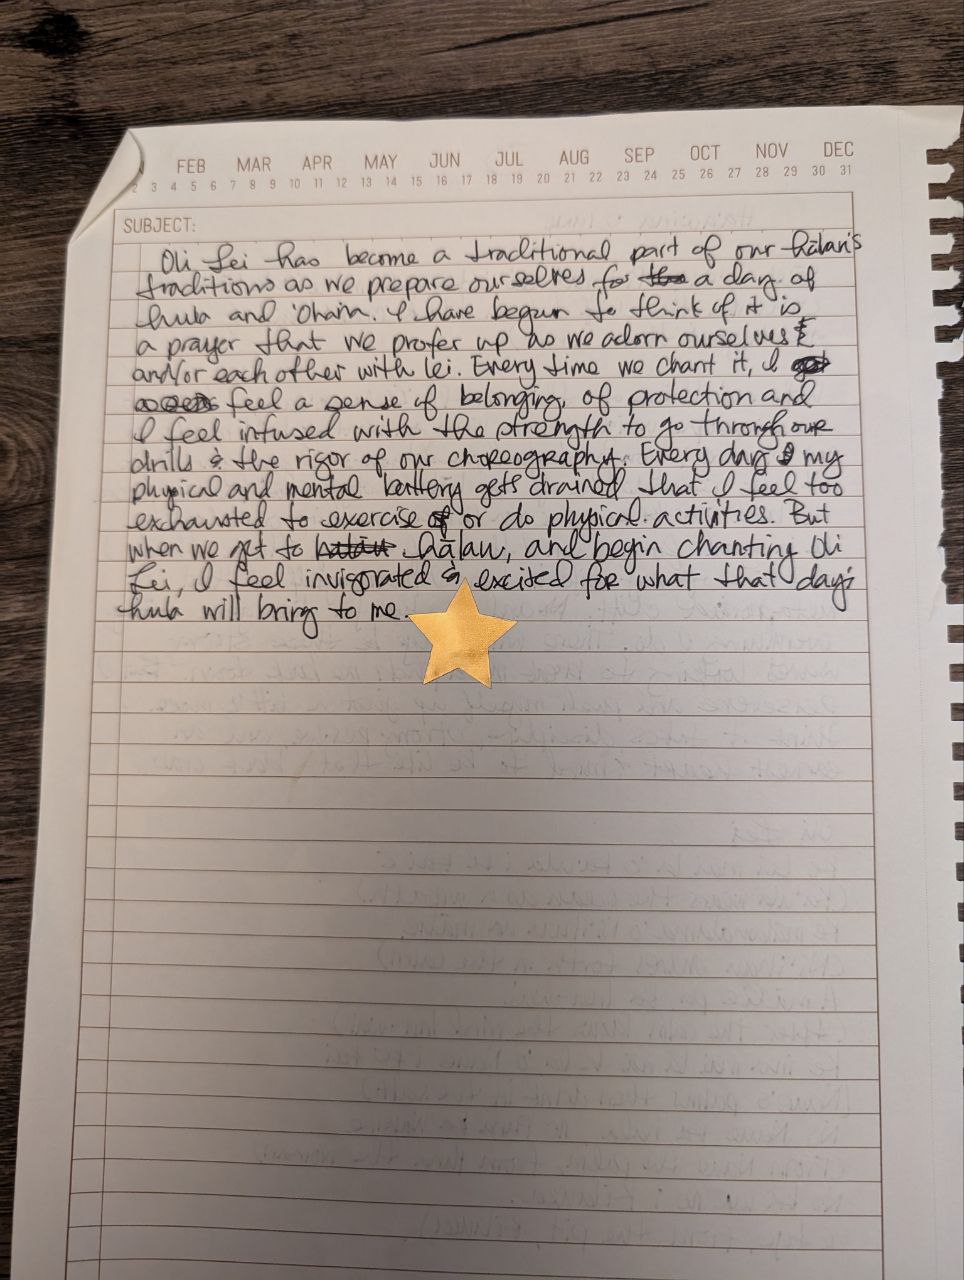 FEB MAR APR MAY JUN JUL AUG SEP OCT NOV DEC
2 3 4 5 6 7 8 9 10 11 12 13 14 15 16 17 18 19 20 21 22 23 24 25 26 27 28 29 30 31
SUBJECT:
Oli Lei has become a traditional part of our hālau's
traditions as we prepare ourselves for a day of
hula and 'Ohana. I have begun to think of it is
a prayer that we profer up as we adorn ourselves &
and/or each other with lei. Every time we chant it, I
feel a sense of belonging, of protection and
I feel infused with the strength to go through our
drills & the rigor of our choreography. Every day my
physical and mental battery gets drained that I feel too
exhausted to exercise or do physical activities. But
when we get to hālau, and begin chanting Oli
Lei, I feel invigorated & excited for what that day's
hula will bring to me.